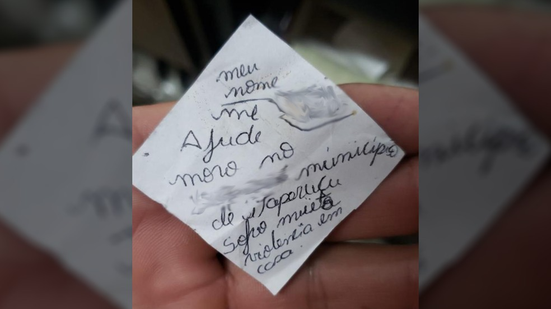 meu
nome
me
Ajude
moro no
município
de Itaperuçu
sofro muito
violencia em
casa